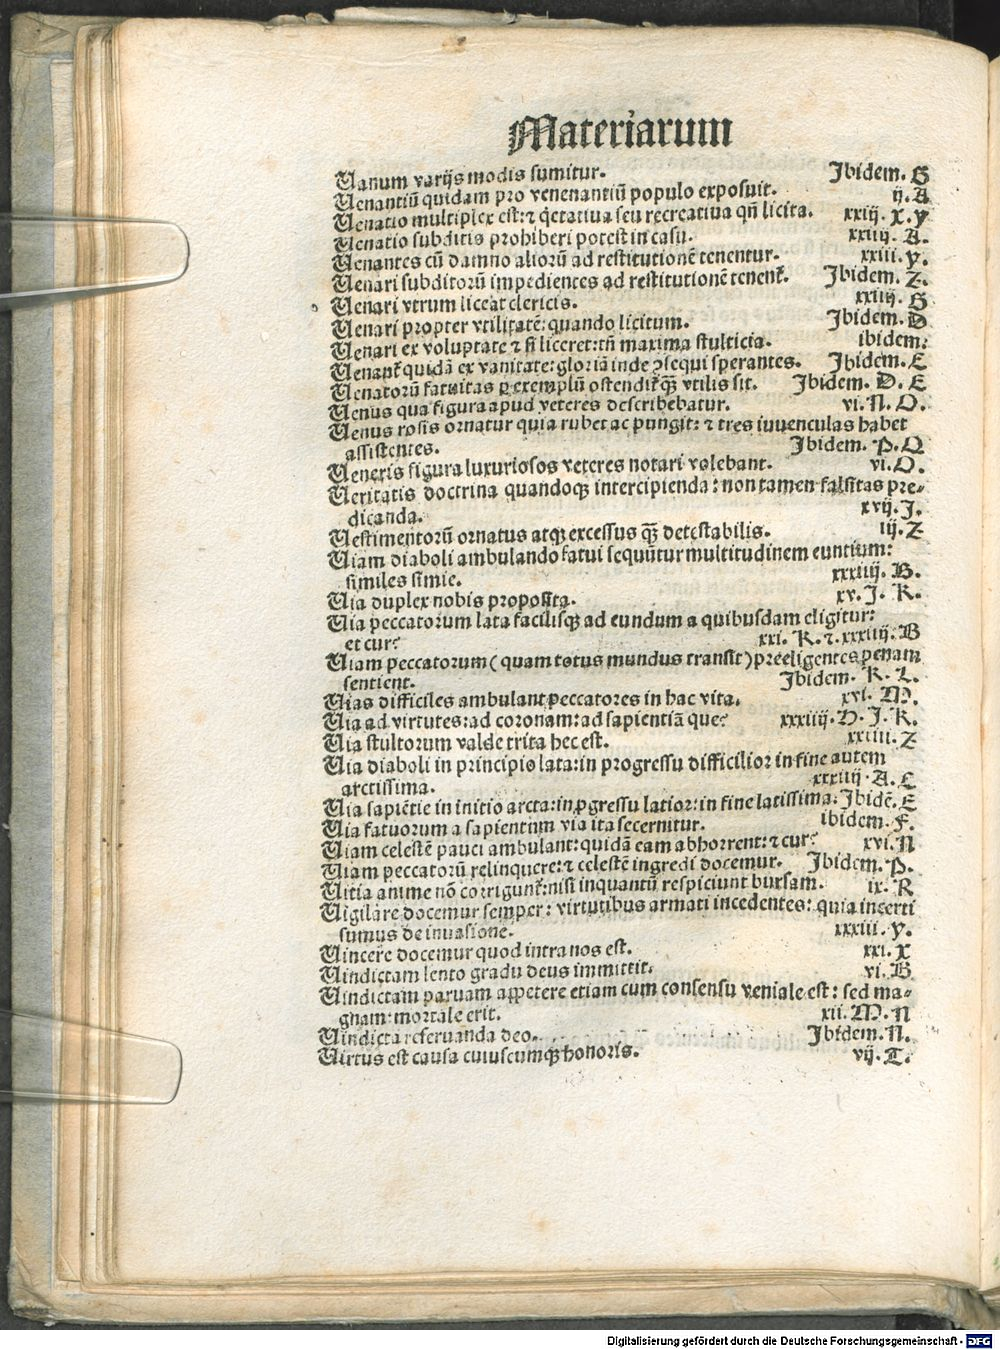 Materiarum
Vanum varijs modis sumitur. Ibidem. G
Uenantiū quidam pro venenantiū populo exposuit. ij. A
Uenatio multiplex est: ⁊ q̄etatiua seu recreatiua qn̄ licita. xxiij. X. Y
Uenatio subditis prohiberi potest in casu. xxiiij. A.
Uenantes cū damno aliorū ad restitutionē tenentur. xxiii. Y.
Uenari subditorū impedientes ad restitutionē tenent̄. Ibidem. Z.
Uenari vtrum liceat clericis. xxiiij. G
Uenari propter vtilitatē: quando licitum. Ibidem. D
Uenari ex voluptate ⁊ si liceret: tn̄ maxima stulticia. ibidem:
Uenant̄ quidā ex vanitate: gloriā inde ↄsequi sperantes. Ibidem. E
Uenatorū fatuitas ꝑ exemplū ostendit̄ qꝫ vtilis sit. Ibidem. D. E
Uenus qua figura apud veteres describebatur. vi. N. O.
Uenus rosis ornatur quia rubet ac pungit: ⁊ tres iuuenculas habet
assistentes. Ibidem. P. Q
Ueneris figura luxuriosos veteres notari volebant. vi. O.
Ueritatis doctrina quandoqꝫ intercipienda: non tamen falsitas pre-
dicanda. xvij. I.
Uestimentorū ornatus atqꝫ excessus qꝫ detestabilis. iij. Z
Uiam diaboli ambulando fatui sequūtur multitudinem euntium:
similes simie. xxxiiij. B.
Uia duplex nobis proposita. xv. I. K.
Uia peccatorum lata facilisqꝫ ad eundum a quibusdam eligitur:
et cur? xxi. K. ⁊. xxxiiij. B
Uiam peccatorum (quam totus mundus transit) preeligentes penam
sentient. Ibidem. K. L.
Uias difficiles ambulant peccatores in hac vita. xvi. M.
Uia ad virtutes: ad coronam: ad sapientiā que? xxxiiij. D. I. K.
Uia stultorum valde trita hec est. xxiiii. Z
Uia diaboli in principio lata: in progressu difficilior in fine autem
arctissima. xxxiiij. A. C
Uia sapiētie in initio arcta: in ꝓgressu latior: in fine latissima: Ibidē. E
Uia fatuorum a sapientum via ita secernitur. ibidem. F.
Uiam celestē pauci ambulant: quidā eam abhorrent: ⁊ cur? xvi. N
Uiam peccatorū relinquere: ⁊ celestē ingredi docemur. Ibidem. P.
Uitia anime nō corrigunt̄: nisi inquantū respiciunt bursam. ix. R
Uigilare docemur semper: virtutibus armati incedentes: quia incerti
sumus de inuasione. xxxiii. Y.
Uincere docemur quod intra nos est. xxi. X
Uindictam lento gradu deus immittit. vi. B
Uindictam paruam appetere etiam cum consensu veniale est: sed ma-
gnam: mortale erit. xii. M. N
Uindicta reseruanda deo. Ibidem. N.
Uirtus est causa cuiuscumqꝫ honoris. vij. T.
Digitalisierung gefördert durch die Deutsche Forschungsgemeinschaft - DFG